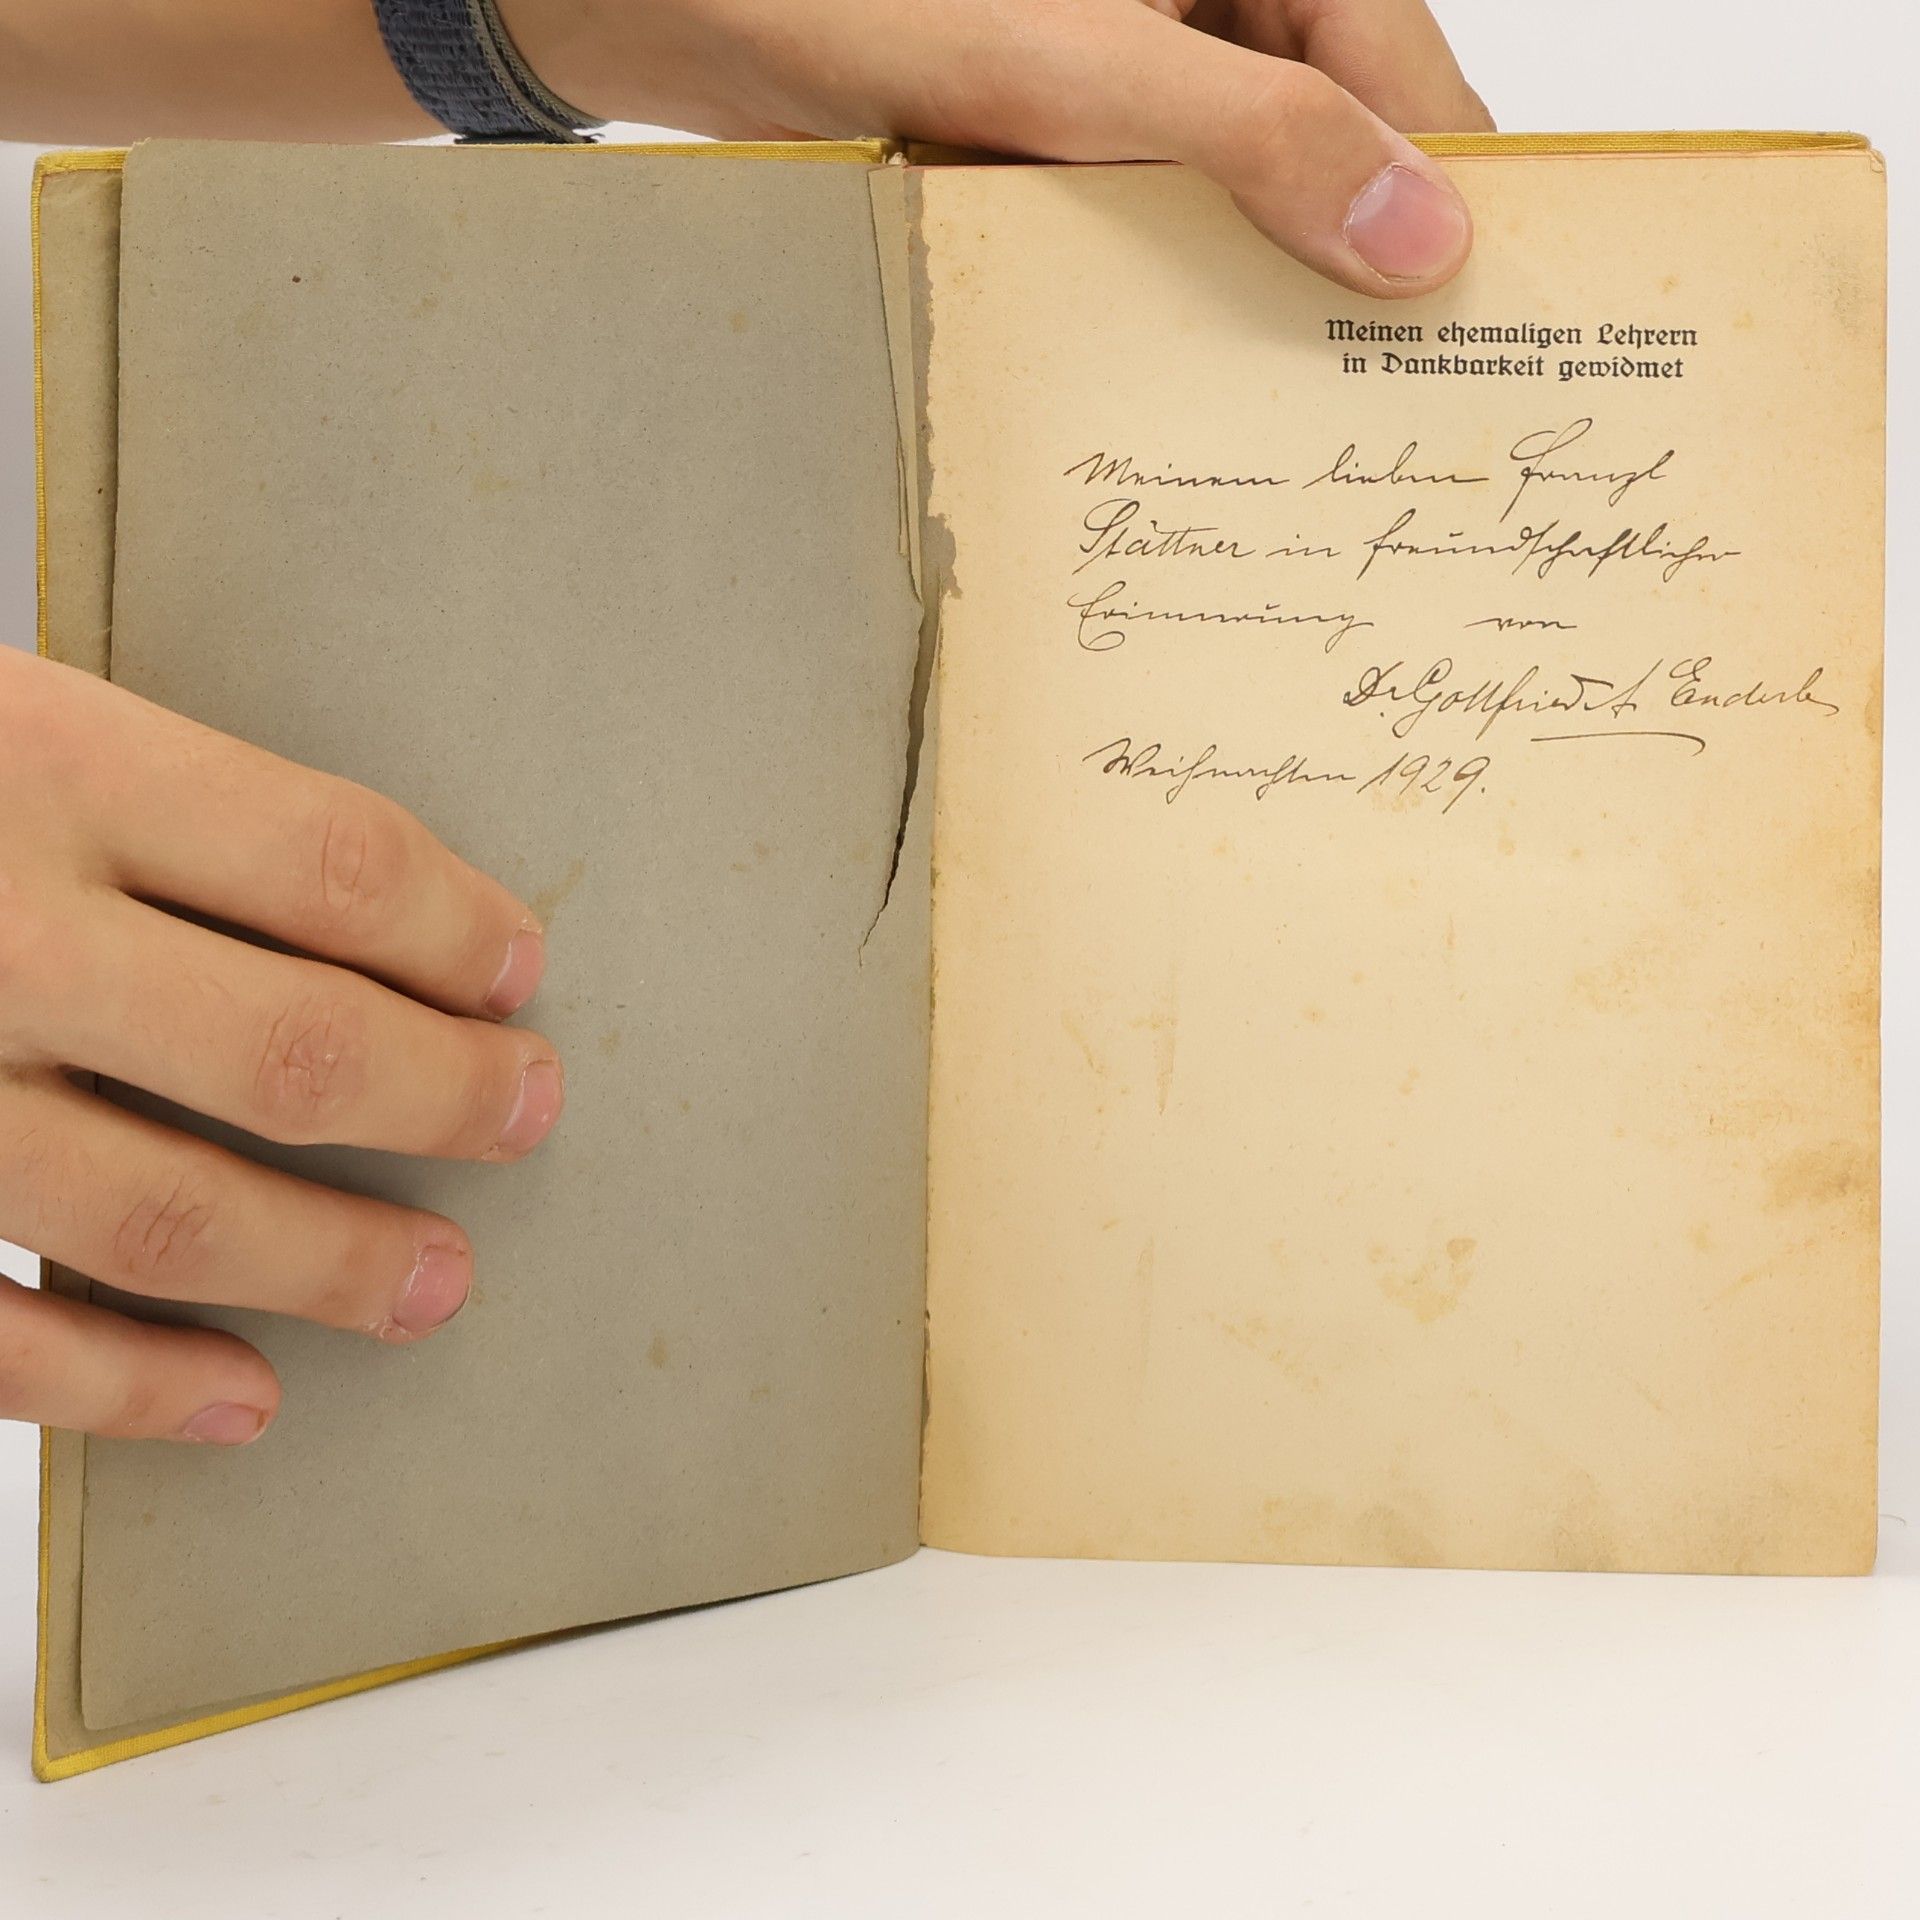 Meinen ehemaligen Lehrern
in Dankbarkeit gewidmet
Meinem lieben Franzl
Stättner in freundschaftlicher
Erinnerung von
Dr. Gottfried A Enderle
Weihnachten 1929.